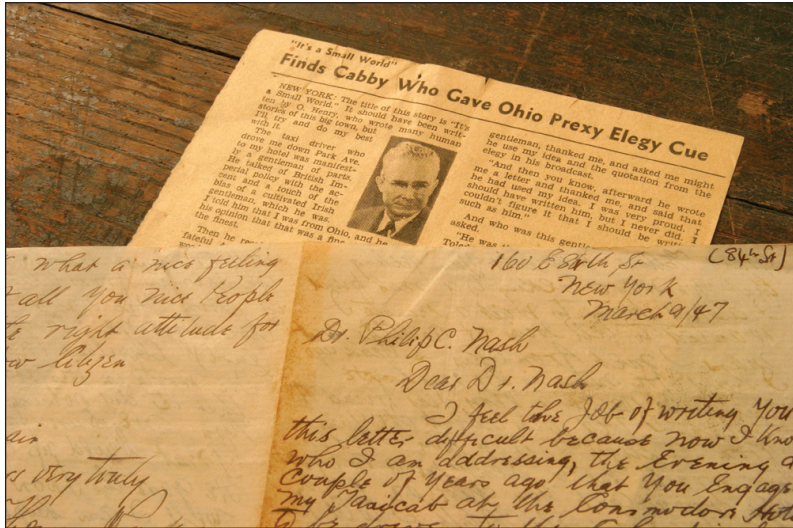 "It's a Small World"
Finds Cabby Who Gave Ohio Prexy Elegy Cue
NEW YORK: The title of this story is "It's
a Small World." It should have been writ-
ten by O. Henry, who wrote many human
stories of this big town, but
I'll try and do my best
with it.
The taxi driver who
drove me down Park Ave.
to my hotel was manifest-
ly a gentleman of parts.
He talked of British Im-
perial policy with the ac-
cent and a touch of the
bias of a cultivated Irish
gentleman, which he was.
I told him that I was from Ohio, and he
his opinion that that was a fine
the finest.
Then he re
fateful
gentleman, thanked me, and asked me might
he use my idea and the quotation from the
elegy in his broadcast.
"And then you know, afterward he wrote
me a letter and thanked me, and said that
he had used my idea. I was very proud. I
should have written him, but I never did. I
couldn't figure it that I should be writi
such as him."
And who was this gentle
asked.
"He was
Tole
what a nice feeling
all you nice People
right attitude for
Citizen
very truly
160 E 84th St (84th St)
New York
March 9/47
Dr. Philip C. Nash
Dear Dr. Nash
I feel the Job of writing You
this letter difficult because now I Kno
who I am addressing, the Evening a
Couple of Years ago that You Engage
my Taxicab at the Commodore Hot
to be driven to the